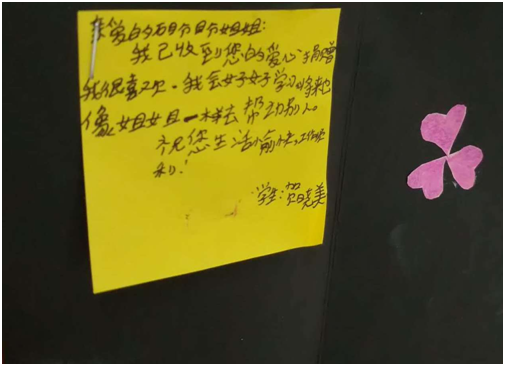 亲爱的硕硕姐姐:
我已收到您的爱心捐赠
我很喜欢。我会好好学习,将来也
像姐姐一样去帮助别人。
祝您生活愉快,工作顺
利!
学生:贺晓美